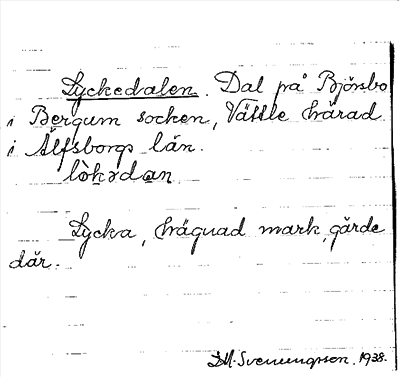 Lyckedalen. Dal på Björsbo
i Bergum socken, Vättle härad
i Älfsborgs län.
lòkədan
Lycka, hägnad mark, gärde
där.
D.M. Svenungsson. 1938.